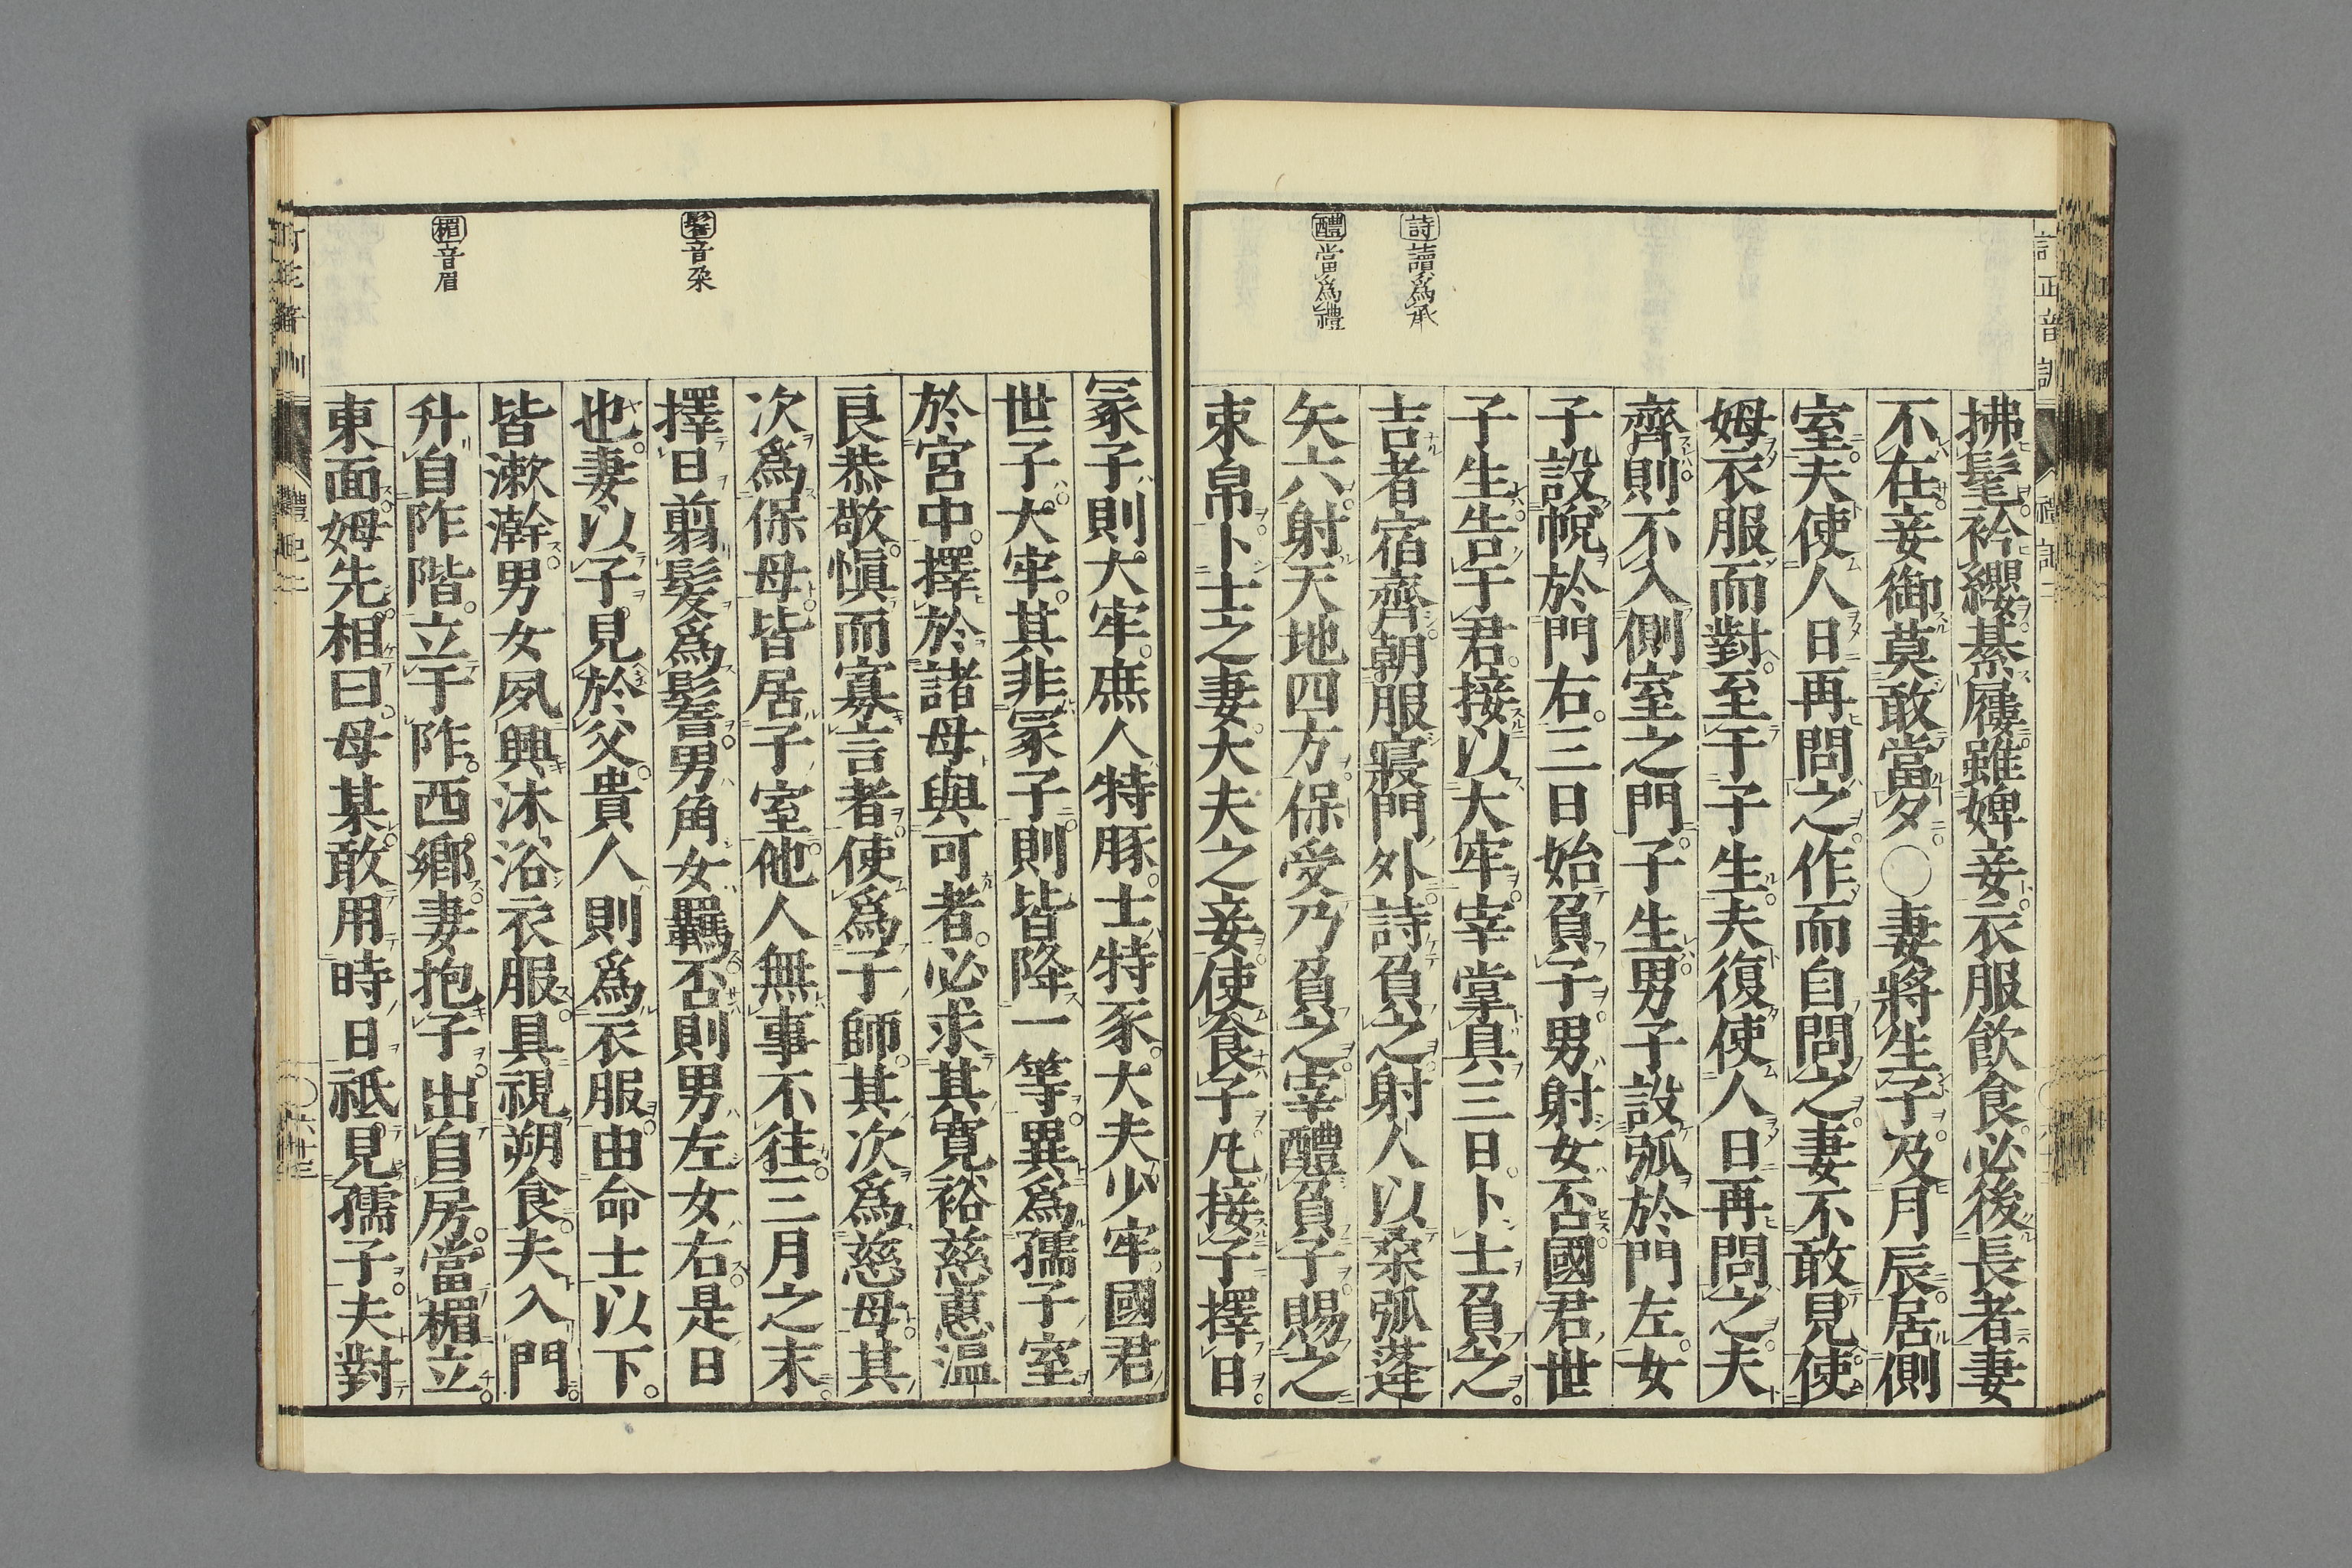 詩讀爲承
醴當爲禮
拂髦衿纓綦屨雖婢妾衣服飲食必後長者妻
不在妾御莫敢當夕○妻將生子及月辰居側
室夫使人日再問之作而自問之妻不敢見使
姆衣服而對至于子生夫復使人日再問之夫
齊則不入側室之門子生男子設弧於門左女
子設帨於門右三日始負子男射女否國君世
子生告于君接以大牢宰掌具三日卜士負之
吉者宿齊朝服寢門外詩負之射人以桑弧蓬
矢六射天地四方保受乃負之宰醴負子賜之
束帛卜士之妻大夫之妾使食子凡接子擇日
鬌音朶
楣音眉
冢子則大牢庶人特豚士特豕大夫少牢國君
世子大牢其非冢子則皆降一等異爲孺子室
於宮中擇於諸母與可者必求其寬裕慈惠温
良恭敬愼而寡言者使爲子師其次爲慈母其
次爲保母皆居子室他人無事不往三月之末
擇日剪髮爲鬌男角女羈否則男左女右是日
也妻以子見於父貴人則爲衣服由命士以下
皆漱澣男女夙興沐浴衣服具視朔食夫入門
升自阼階立于阼西鄉妻抱子出自房當楣立
東面姆先相曰母某敢用時日祗見孺子夫對
禮記二